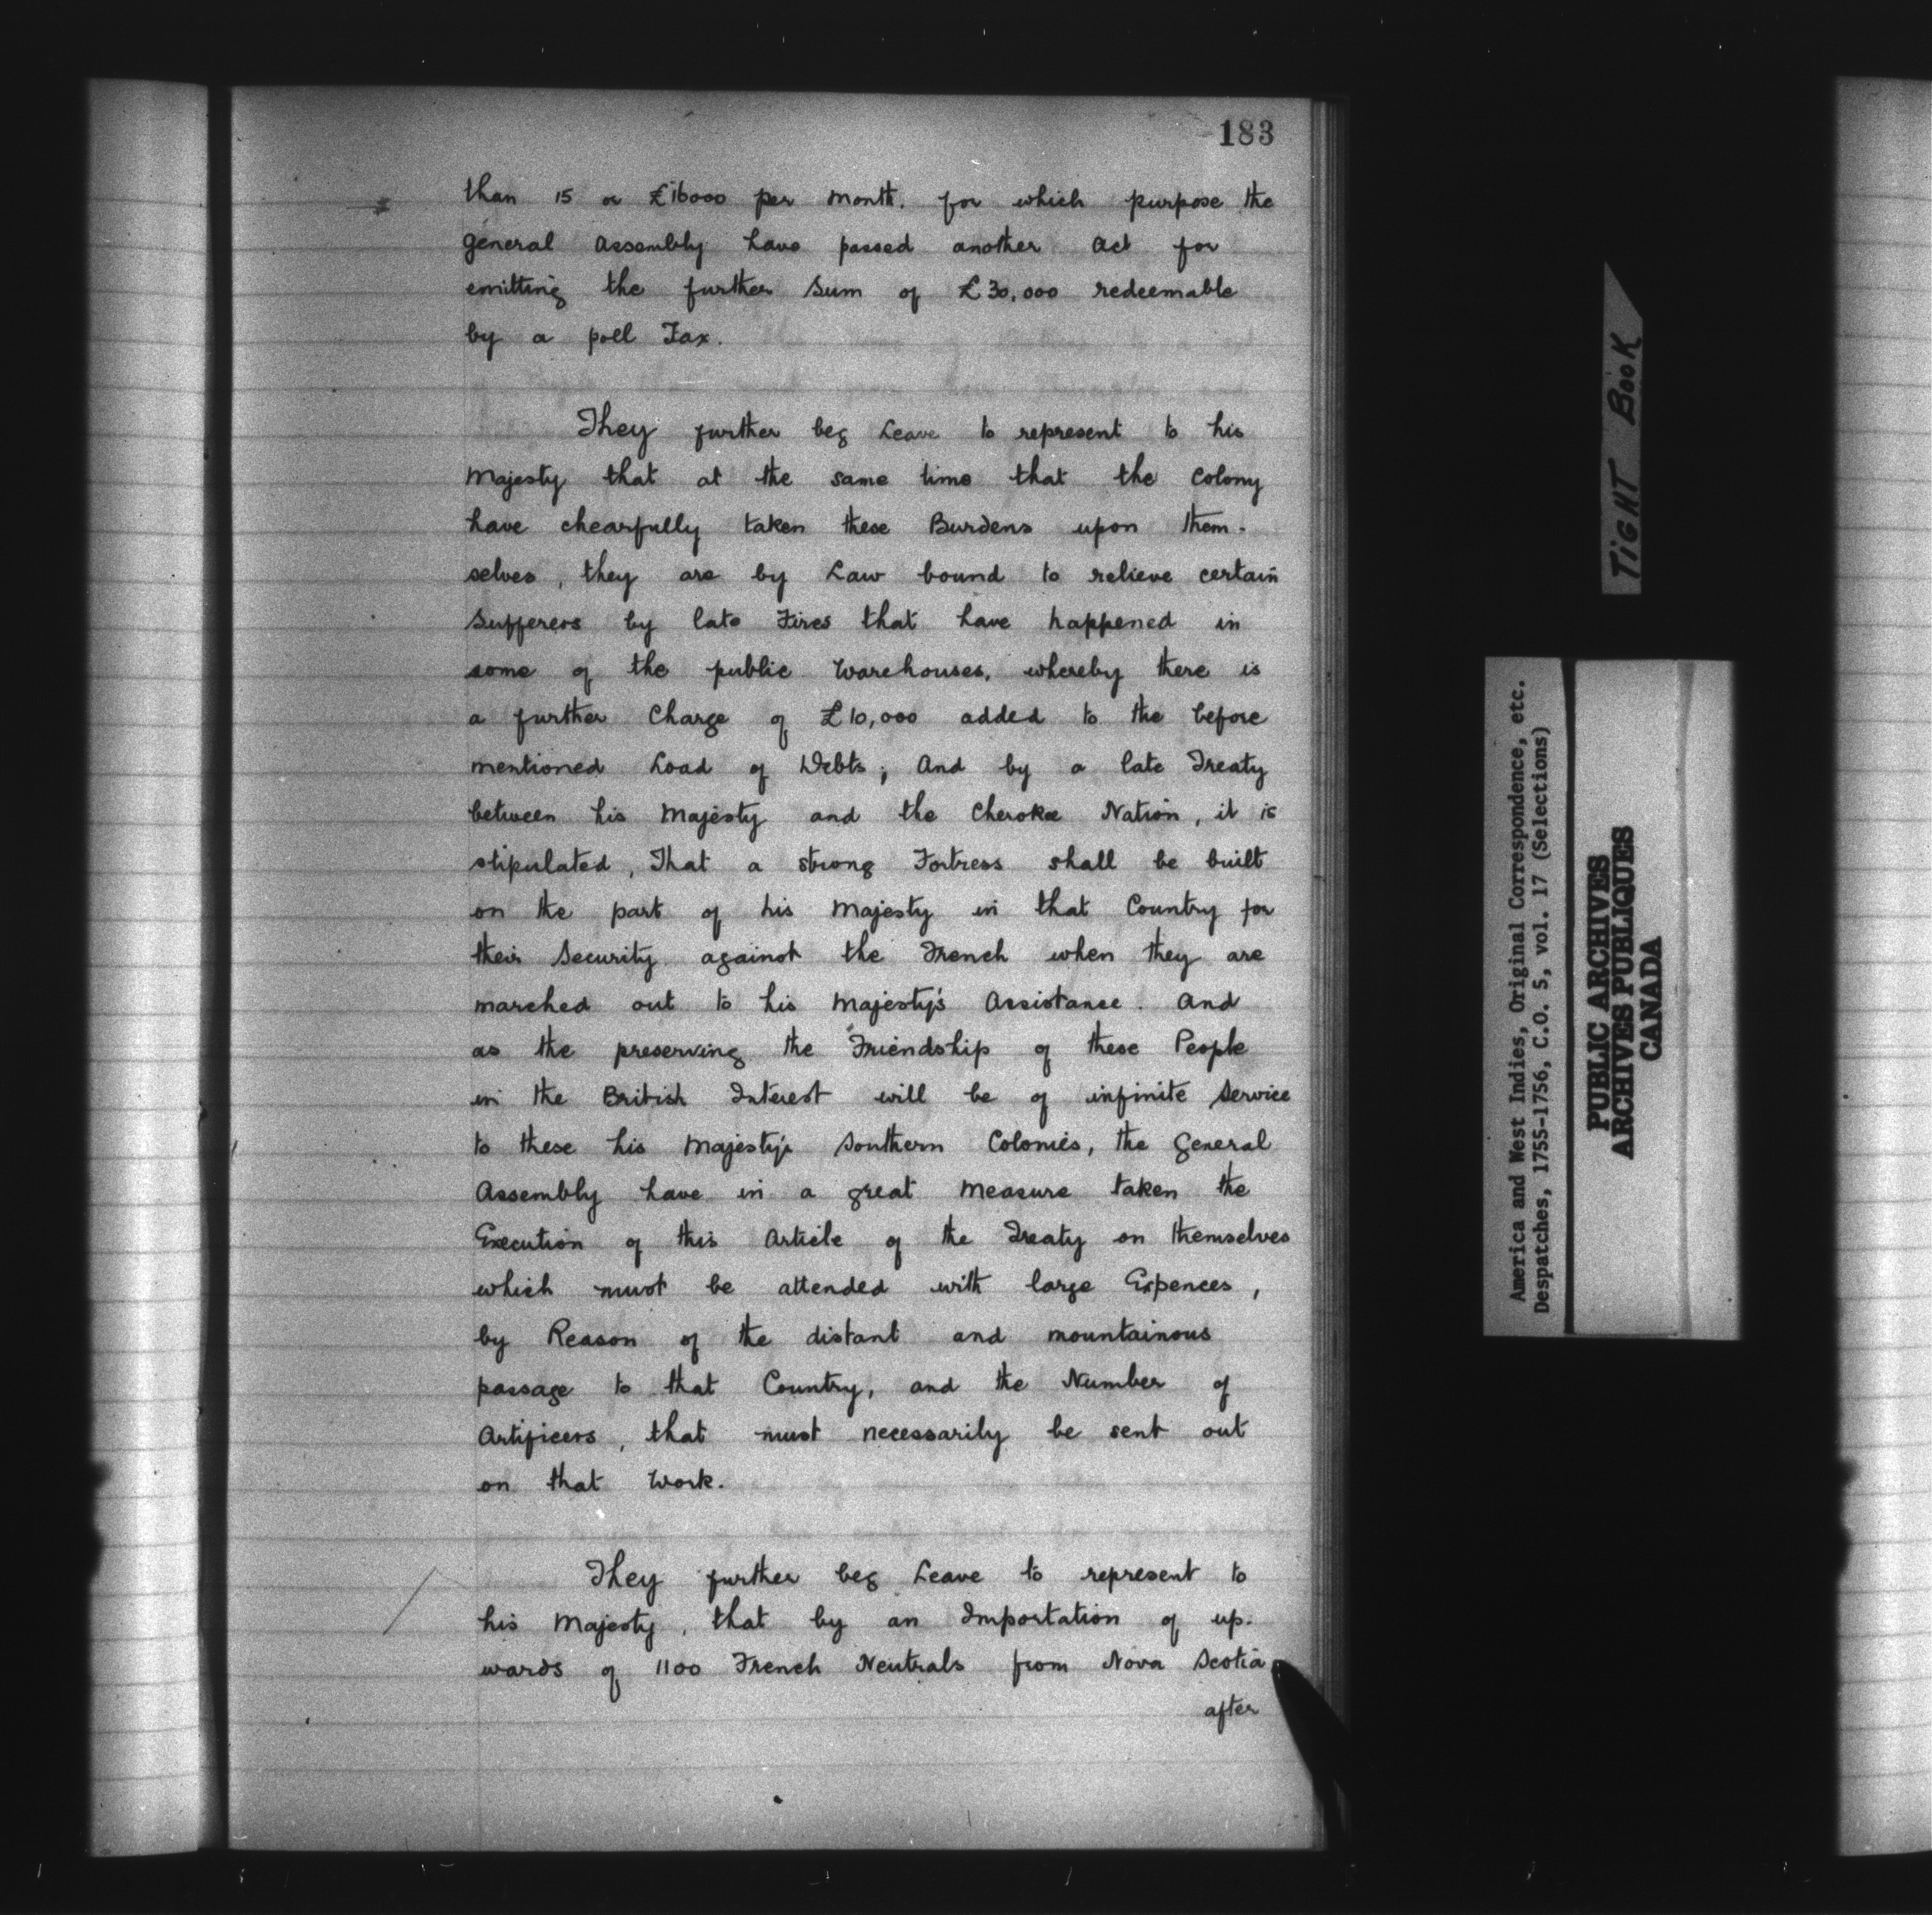 183
than 15 or £16000 per month. for which purpose the
general Assembly have passed another Act for
emitting the further Sum of £30,000 redeemable
by a poll Tax.
They further beg Leave to represent to his
Majesty that at the same time that the Colony
have chearfully taken these Burdens upon them-
selves, they are by Law bound to relieve certain
Sufferers by late Fires that have happened in
some of the public Warehouses, whereby there is
a further Charge of £10,000 added to the before
mentioned Load of Debts; And by a late Treaty
between his Majesty and the Cherokee Nation, it is
stipulated, That a strong Fortress shall be built
on the part of his Majesty in that Country for
their Security against the French when they are
marched out to his Majesty's Assistance. And
as the preserving the Friendship of these People
in the British Interest will be of infinite Service
to these his Majesty's Southern Colonies, the General
Assembly have in a great Measure taken the
Execution of this Article of the Treaty on themselves
which must be attended with large Expences,
by Reason of the distant and mountainous
passage to that Country, and the Number of
Artificers, that must necessarily be sent out
on that Work.
They further beg Leave to represent to
his Majesty, that by an Importation of up-
wards of 1100 French Neutrals from Nova Scotia
after
TIGHT BOOK
America and West Indies, Original Correspondence, etc.
Despatches, 1755-1756, C.O. 5, vol. 17 (Selections)
PUBLIC ARCHIVES
ARCHIVES PUBLIQUES
CANADA